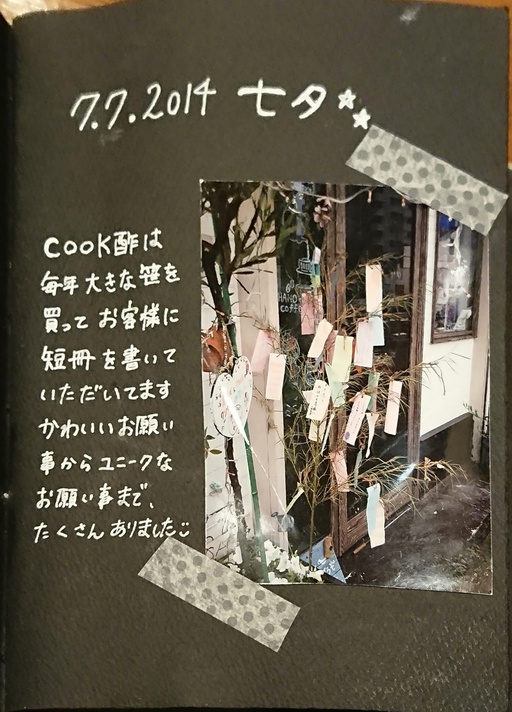 7.7.2014 七夕☆☆
COOK酢は
毎年大きな笹を
買ってお客様に
短冊を書いて
いただいてます
かわいいお願い
事からユニークな
お願い事まで、
たくさんありました
HAND
COFFEE